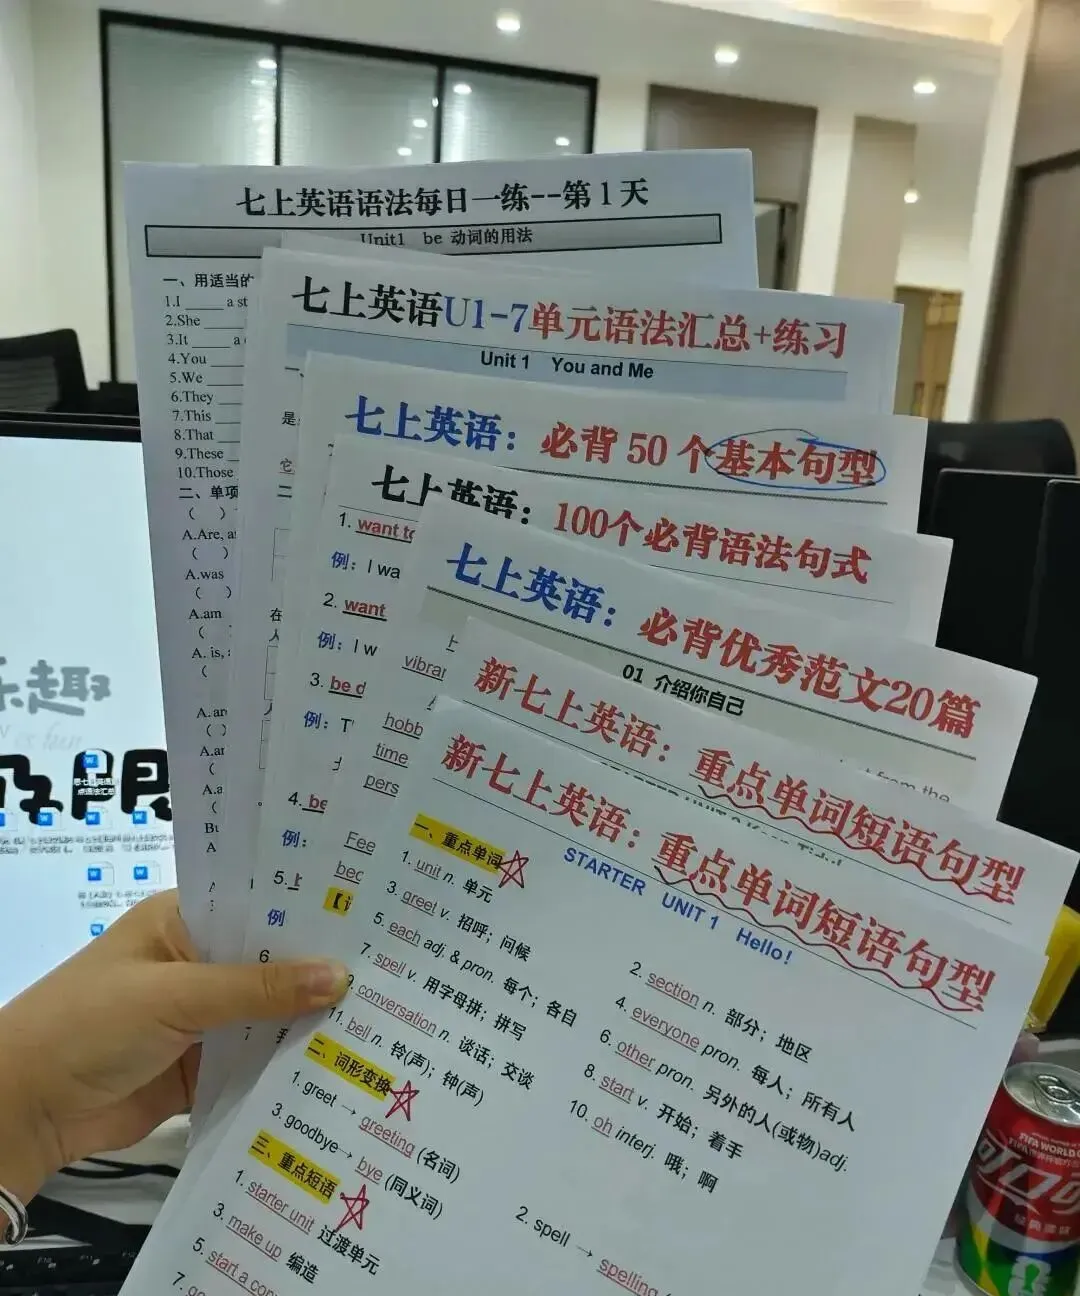 七上英语语法每日一练--第1天
Unit1 be 动词的用法
一、用适当的
1.I ____ a st
2.She ____
3.It ____ a
4.You ____
5.We ____
6.They ____
7.This ____
8.That ____
9.These ____
10.Those
二、单项
( )
A.Are, a
( )
A.was
( )
A.am
( )
A. is,
(
A. ar
( )
A.ar
(
A.a
(
Bu
A
七上英语U1-7单元语法汇总+练习
Unit 1 You and Me
是
它
二
在
人
七上英语：必背 50 个基本句型
七上英语：100个必背语法句式
1. want to
例：I wa
2. want
例：I w
3. be d
例：T
4. be
例：
5.
例
6.
七上英语：必背优秀范文20篇
01 介绍你自己
from the
vibrar
hobb
time
pers
Fee
bec
新七上英语：重点单词短语句型
新七上英语：重点单词短语句型
STARTER UNIT 1 Hello!
一、重点单词
1. unit n. 单元
2. section n. 部分；地区
3. greet v. 招呼；问候
4. everyone pron. 每人；所有人
5. each adj. & pron. 每个；各自
6. other pron. 另外的人(或物)adj.
7. spell v. 用字母拼；拼写
8. start v. 开始；着手
9. conversation n. 谈话；交谈
10. oh interj. 哦；啊
11. bell n. 铃(声)；钟(声)
二、词形变换
1. greet → greeting (名词)
2. spell → spelling
3. goodbye→ bye (同义词)
三、重点短语
1. starter unit 过渡单元
3. make up 编造
5. start a con
7. go
乐趣
FIFA WORLD C